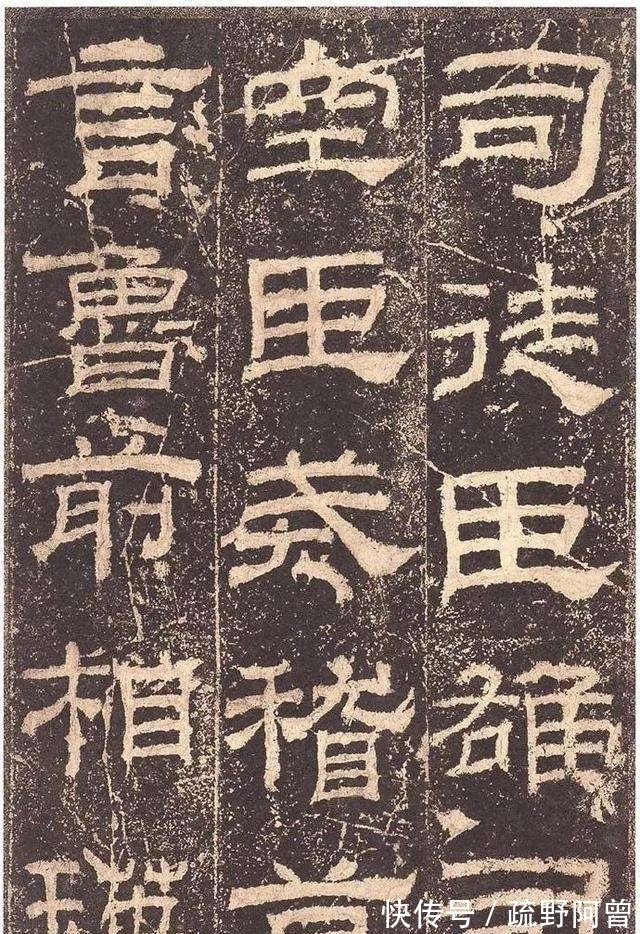 司徒臣雄司
空臣戒稽首
言魯前相瑛
快传号 / 疏野阿曾